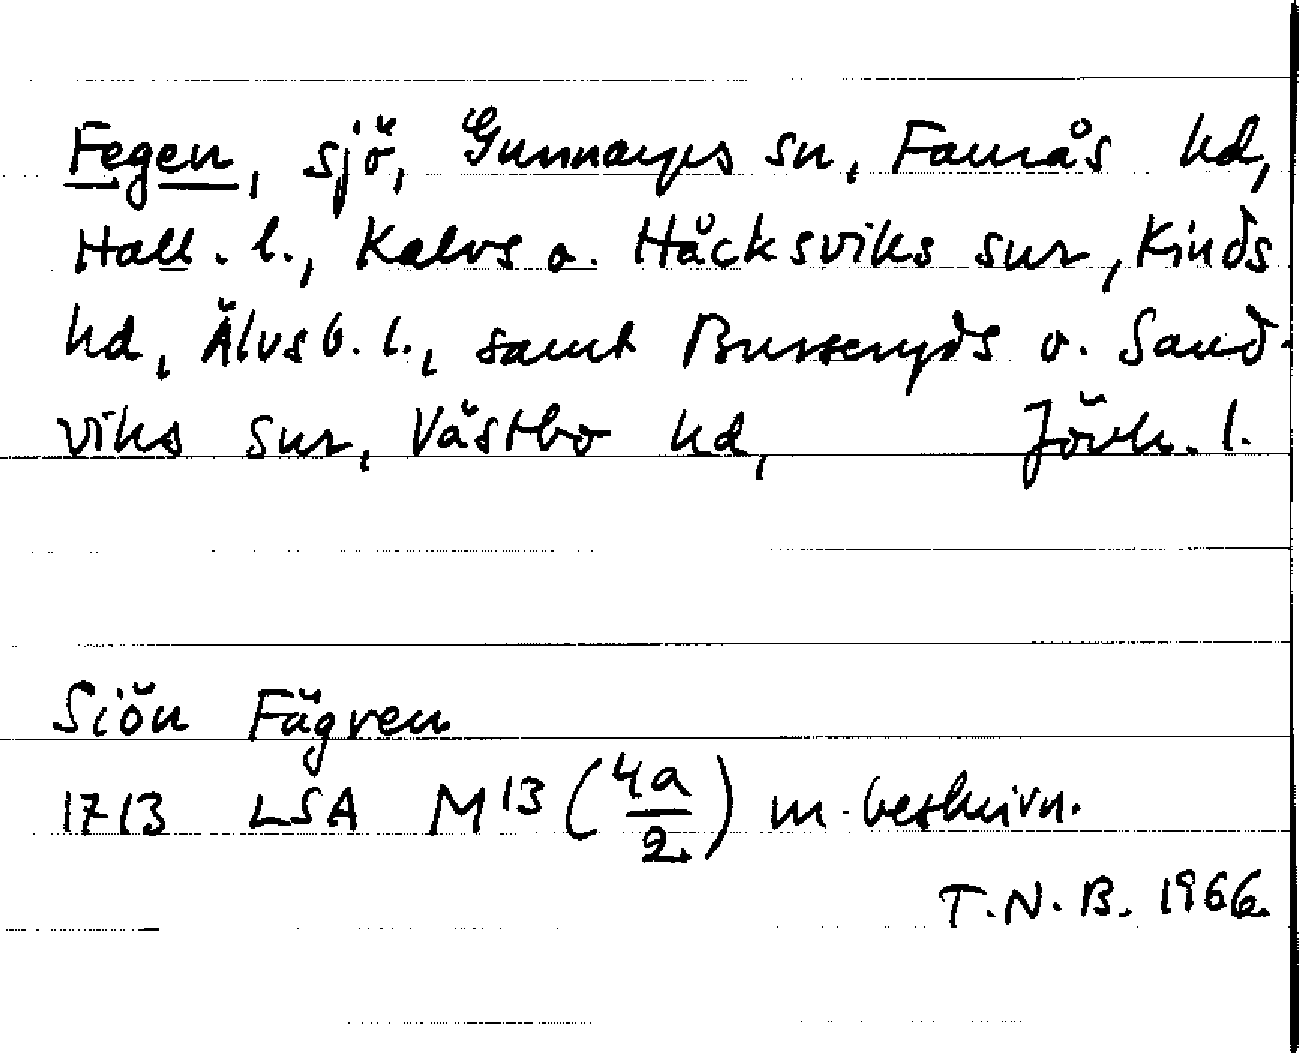 Fegen, sjö, Gunnarps sn, Faurås hd,
Hall. l., Kalvs o. Håcksviks snr, Kinds
hd, Älvsb. l., samt Burseryds o. Sand-
viks snr, Västbo hd, Jövk. l.
Siön Fägren
1713 LSA M13 (4a/2) m. beskrivn.
T.N.B. 1966.